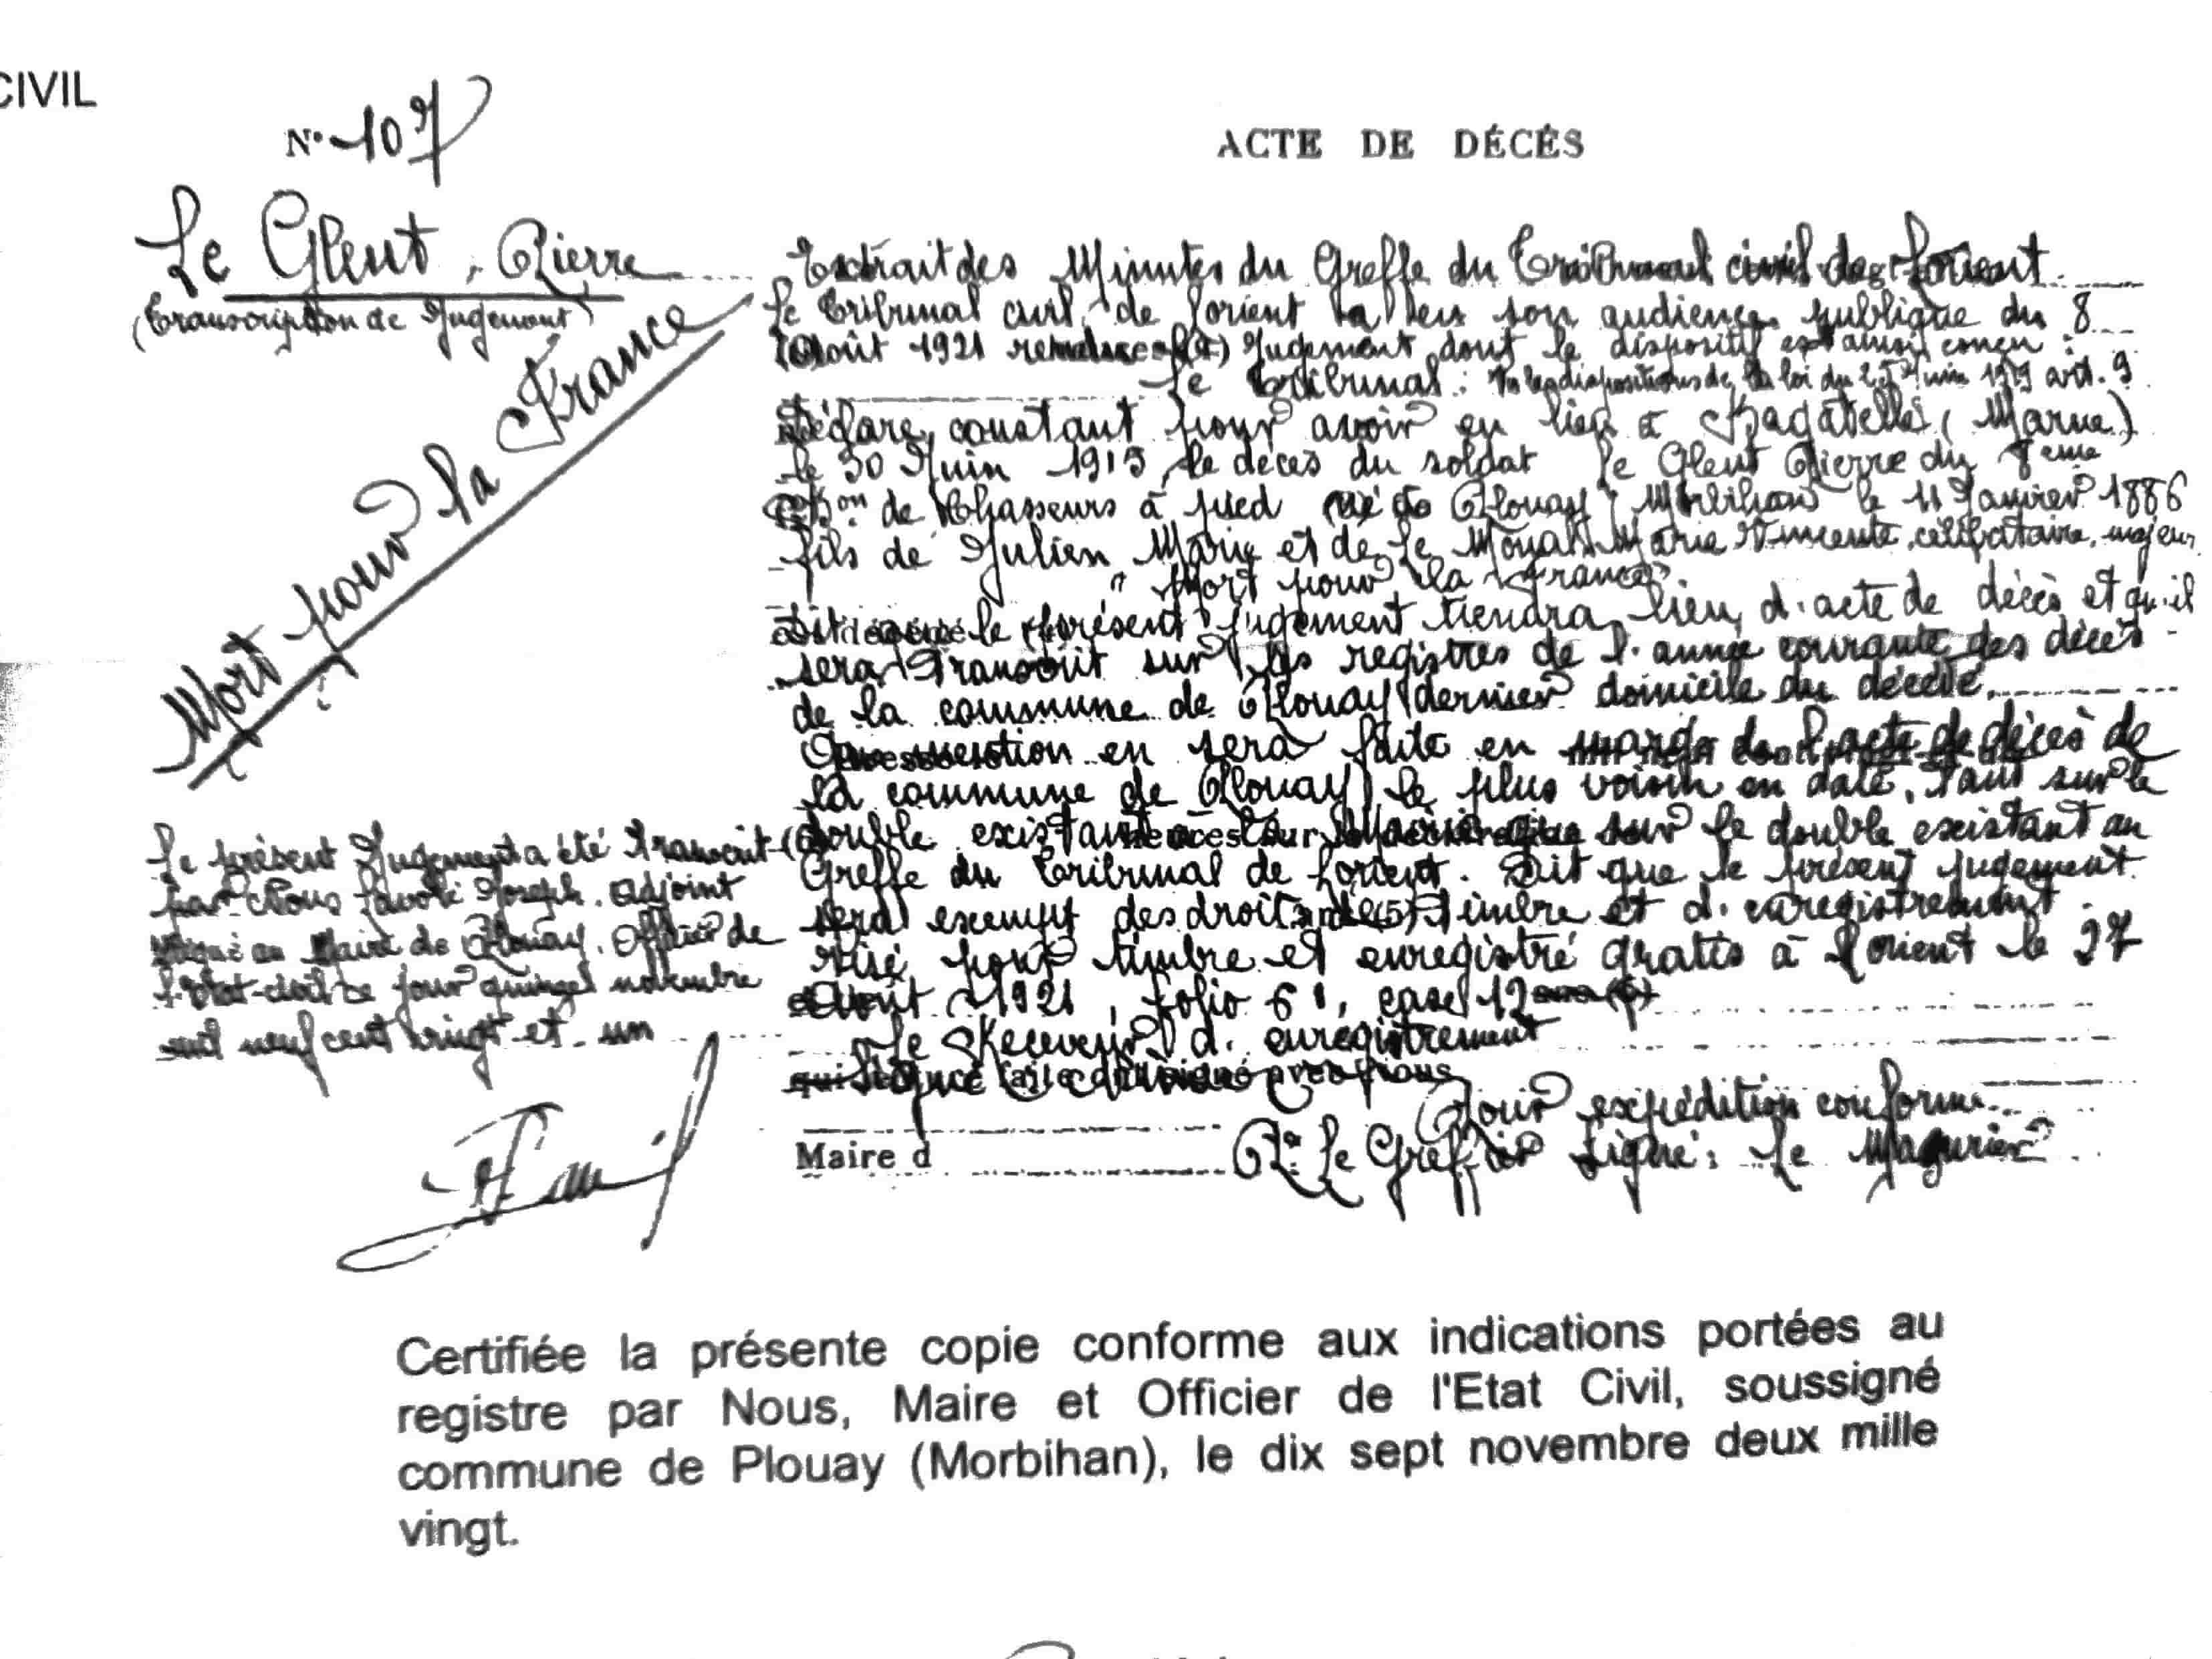 CIVIL
N° 107
ACTE DE DÉCÈS
Le Glent, Pierre
(Transcription de Jugement)
Mort pour la France
Extrait des Minutes du Greffe du Tribunal civil de Lorient.
Le Tribunal civil de Lorient a en son audience publique du 8
Août 1921 jugement dont le dispositif est ainsi concu :
Le Tribunal : Vu les dispositions de la loi du 25 Juin 1919 art. 9
Déclare constant pour avoir eu lieu à Bagatelle (Marne)
le 30 Juin 1915 le décès du soldat Le Glent Pierre du 8ème
Bon de Chasseurs à pied né à Plouay Morbihan le 11 Janvier 1886
fils de Julien Marie et de Le Moual Marie Vincente, célibataire, majeur
" Mort pour la France "
Dit que le présent jugement tiendra lieu d'acte de décès et qu'il
sera transcrit sur les registres de l'année courante des décès
de la commune de Plouay dernier domicile du décédé.
Que mention en sera faite en marge de l'acte de décès de
la commune de Plouay le plus voisin en date, tant sur le
double existant à la Mairie que sur le double existant au
Greffe du Tribunal de Lorient. Dit que le présent jugement
sera exempt des droits de timbre et d'enregistrement.
Visé pour timbre et enregistré gratis à Lorient le 27
Août 1921, folio 61, case 12
Le Receveur d'enregistrement
Signé
Pour expédition conforme
Maire d
Pr Le Greffier Signé : Le Magurier
Le présent Jugement a été transcrit
par Nous Joseph, adjoint
Maire de Plouay, Officier de
l'Etat-civil ce jour quinze novembre
mil neuf cent vingt et un
Certifiée la présente copie conforme aux indications portées au
registre par Nous, Maire et Officier de l'Etat Civil, soussigné
commune de Plouay (Morbihan), le dix sept novembre deux mille
vingt.